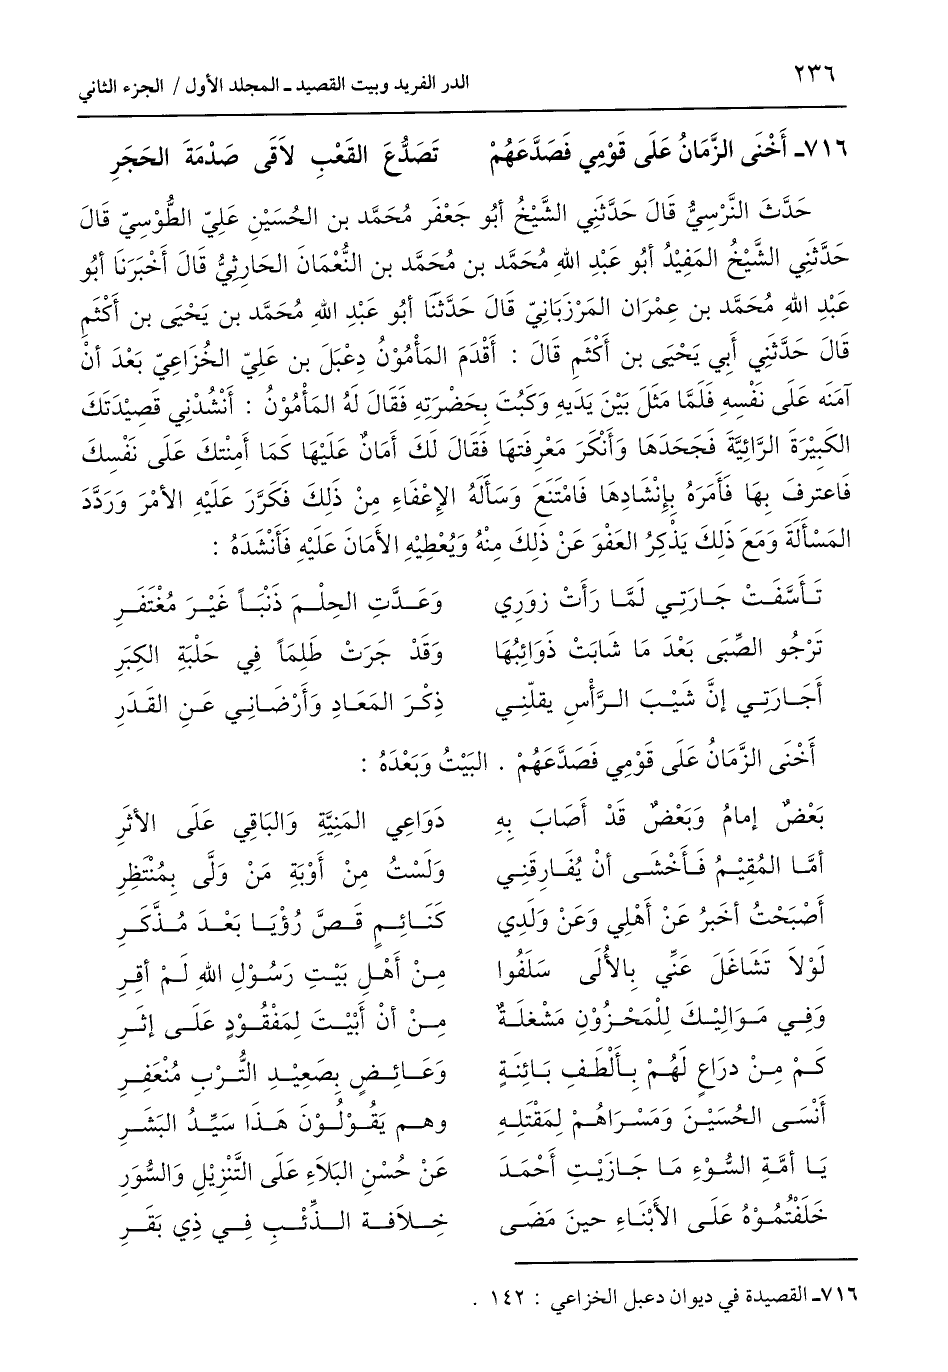 ٢٣٦
الدر الفريد وبيت القصيد ـ المجلد الأول / الجزء الثاني
٧١٦ـ أَخْنَى الزَّمَانُ عَلَى قَوْمِي فَصَدَّعَهُمْ تَصَدُّعَ القَعْبِ لاَقَى صَدْمَةَ الحَجَرِ
حَدَّثَ النَّرْسِيُّ قَالَ حَدَّثَنِي الشَّيْخُ أَبُو جَعْفَر مُحَمَّد بن الحُسَيْنِ عَلِيّ الطُّوْسِيّ قَالَ
حَدَّثَنِي الشَّيْخُ المَفِيْدُ أبُو عَبْدِ اللهِ مُحَمَّد بن مُحَمَّد بن النُّعْمَان الحَارِثِيُّ قَالَ أَخْبَرَنَا أبُو
عَبْدِ اللهِ مُحَمَّد بن عِمْرَان المَرْزبَانِيّ قَالَ حَدَّثَنَا أبُو عَبْدِ اللهِ مُحَمَّد بن يَحْيَى بن أكْثَم
قَالَ حَدَّثَنِي أَبِي يَحْيَى بن أَكْثَم قَالَ : أَقْدَمَ المَأْمُوْنُ دِعْبَلَ بن عَلِيّ الخُزَاعِيّ بَعْدَ أنْ
آمَنَه عَلَى نَفْسِهِ فَلَمَّا مَثَلَ بَيْنَ يَدَيهِ وَكَبتَ بِحَضْرَتِهِ فَقَالَ لَهُ المَأْمُوْنُ : أَنْشُدْنِي قَصِيْدَتكَ
الكَبِيْرَةَ الرَّائِيَّةَ فَجَحَدَهَا وَأَنْكَرَ مَعْرِفَتهَا فَقَالَ لَكَ أَمَانٌ عَلَيْهَا كَمَا أَمِنْتكَ عَلَى نَفْسِكَ
فَاعتَرفَ بِهَا فَأَمَرَهُ بِإنْشَادِهَا فَامْتَنَعَ وَسَأَلَهُ الإعْفَاءِ مِنْ ذَلِكَ فَكَرَّرَ عَلَيْهِ الأمْرَ وَرَدَّدَ
المَسْأَلَةَ وَمَعَ ذَلِكَ يَذْكِرُ العَفْوَ عَنْ ذَلِكَ مِنْهُ وَيُعْطِيْهِ الأَمَانَ عَلَيْهِ فَأَنْشَدَهُ :
تَأَسَّفَتْ جَارَتِي لَمَّا رَأَتْ زوَرِي وَعَدَّتِ الحِلْمَ ذَنْبَاً غَيْرَ مُغْتَفَرِ
تَرْجُو الصِّبَى بَعْدَ مَا شَابَتْ ذَوَائِبُهَا وَقَدْ جَرَتْ طَلِمَاً فِي حَلْبَةِ الكِبَرِ
أَجَارَتِي إنَّ شَيْبَ الرَّأْسِ يقلّنِي ذِكْرَ المَعَادِ وَأَرْضَانِي عَنِ القَدَرِ
أَخْنَى الزَّمَانُ عَلَى قَوْمِي فَصَدَّعَهُمْ . البَيْتُ وَبَعْدَهُ :
بَعْضٌ إمَامُ وَبَعْضٌ قَدْ أَصَابَ بِهِ دَوَاعِي المَنِيَّةِ وَالبَاقِي عَلَى الأثَرِ
أمَّا المُقِيْمُ فَأَخْشَى أنْ يُفَارِقَنِي وَلَسْتُ مِنْ أَوْبَةِ مَنْ وَلَّى بِمُنْتَظِرِ
أَصْبَحْتُ أخبَرُ عَنْ أَهْلِي وَعَنْ وَلَدِي كَنَائِمٍ قَصَّ رُؤْيَا بَعْدَ مُذَّكَرِ
لَوْلاَ تَشَاغَلَ عَنِّي بِالأُلَى سَلَفُوا مِنْ أَهْلِ بَيْتِ رَسُوْلِ اللهِ لَمْ أقِرِ
وَفِي مَوَالِيْكَ لِلْمَحْزُوْنِ مَشْغَلَةٌ مِنْ أنْ أَبِيْتَ لِمَفْقُودٍ عَلَى إثَرِ
كَمْ مِنْ ذرَاعٍ لَهُمْ بِأَلْطَفِ بَائِنَةٍ وَعَائِضٍ بِصَعِيْدِ التُّرْبِ مُنْعَفِرِ
أَنْسَى الحُسَيْنَ وَمَسْرَاهُمْ لِمَقْتَلِهِ وهم يَقُوْلُوْنَ هَذَا سَيِّدُ البَشَرِ
يَا أمَّةِ السُّوْءِ مَا جَازَيْتِ أَحْمَدَ عَنْ حُسْنِ البَلاَءِ عَلَى التَّنْزِيْلِ وَالسُّوَرِ
خَلَفْتُمُوْهُ عَلَى الأبْنَاءِ حِينَ مَضَى خِلافَةِ الذِّئْبِ فِي ذِي بَقَرِ
٧١٦ـ القصيدة في ديوان دعبل الخزاعي : ١٤٢ .